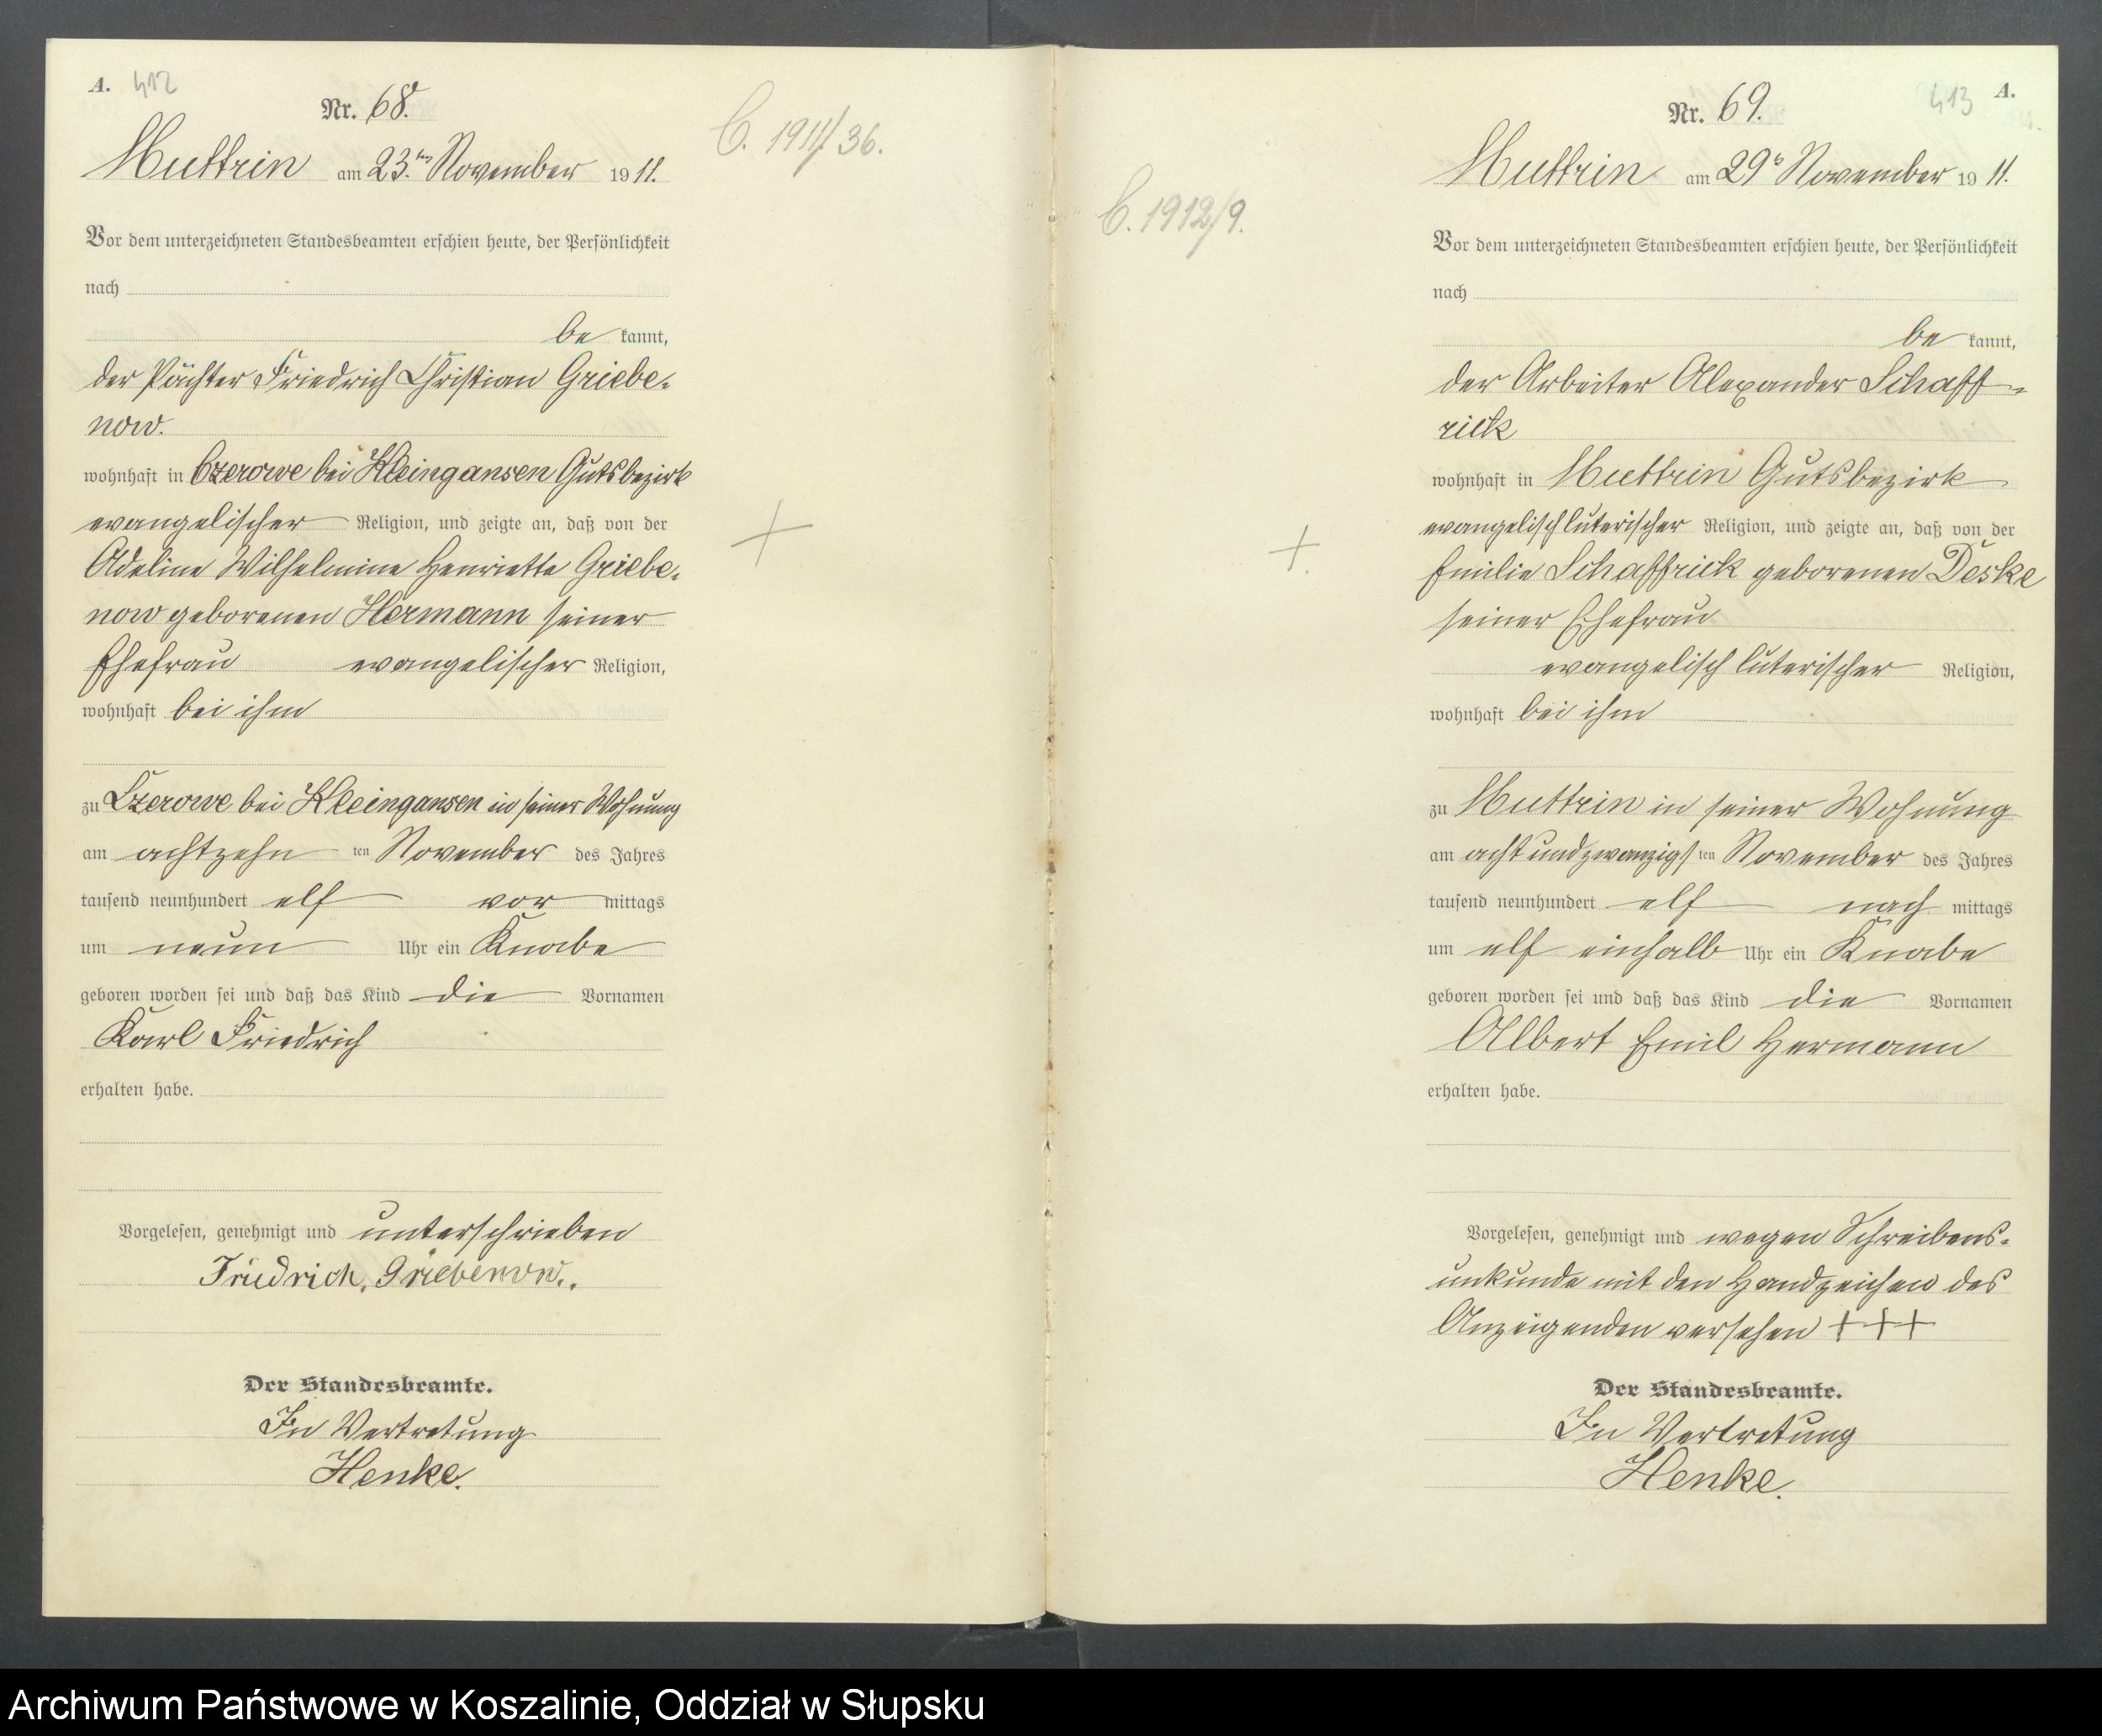 A. 412
Nr. 68.
C. 1911/36.
Muttrin am 23.ten November 1911.
Vor dem unterzeichneten Standesbeamten erschien heute, der Persönlichkeit
nach
be kannt,
der Pächter Friedrich Christian Griebe-
now.
wohnhaft in Czerowe bei Kleingansen Gutsbezirk
evangelischer Religion, und zeigte an, daß von der
Adeline Wilhelmine Henriette Griebe-
now geborenen Hermann seiner
Ehefrau evangelischer Religion,
wohnhaft bei ihm
zu Czerowe bei Kleingansen in seiner Wohnung
am achtzehn ten November des Jahres
tausend neunhundert elf vor mittags
um neun Uhr ein Knabe
geboren worden sei und daß das Kind die Vornamen
Karl Friedrich
erhalten habe.
Vorgelesen, genehmigt und unterschrieben
Friedrich, Griebenow.
Der Standesbeamte.
In Vertretung
Henke.
413 A.
Nr. 69.
C. 1912/9.
Muttrin am 29 November 1911.
Vor dem unterzeichneten Standesbeamten erschien heute, der Persönlichkeit
nach
be kannt,
der Arbeiter Alexander Schaff-
rick
wohnhaft in Muttrin Gutsbezirk
evangelisch luterischer Religion, und zeigte an, daß von der
Emilie Schaffrick geborenen Deske
seiner Ehefrau
evangelisch luterischer Religion,
wohnhaft bei ihm
zu Muttrin in seiner Wohnung
am acht und zwanzigs ten November des Jahres
tausend neunhundert elf nach mittags
um elf einhalb Uhr ein Knabe
geboren worden sei und daß das Kind die Vornamen
Albert Emil Hermann
erhalten habe.
Vorgelesen, genehmigt und wegen Schreibens-
unkunde mit den Handzeichen des
Anzeigenden versehen +++
Der Standesbeamte.
In Vertretung
Henke.
Archiwum Państwowe w Koszalinie, Oddział w Słupsku